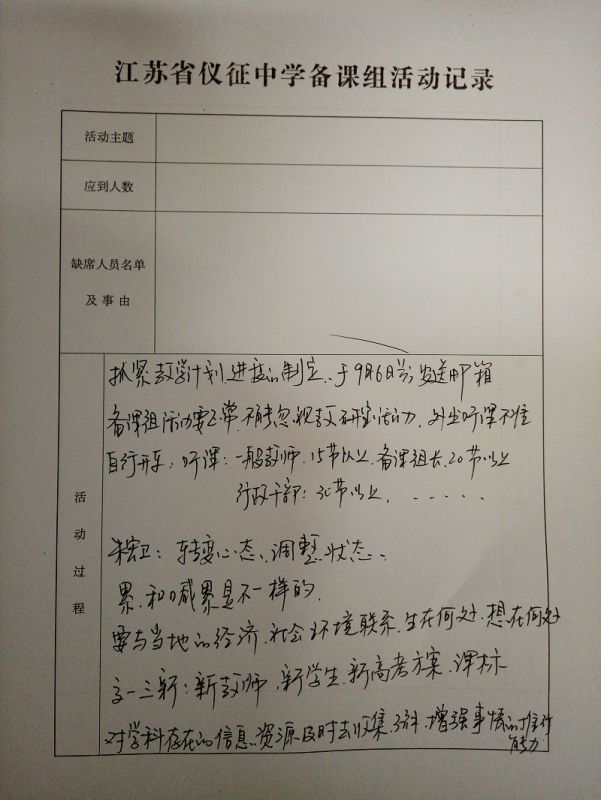 江苏省仪征中学备课组活动记录
活动主题
应到人数
缺席人员名单
及事由
活动过程
抓紧教学计划、进度的制定、于9月6日前发送邮箱
备课组活动要正常、不能忽视教研活动力、外出听课不准
自行开车;听课:一般教师、15节以上、备课组长、20节以上
行政干部:30节以上、.....
卫:转变心态、调整状态、
累、和喊累是不一样的、
要与当地的经济、社会环境联系、生在何处、想在何处
高一三新:新教师、新学生、新高考方案、课标
对学科存在的信息、资源及时去收集、增强事情的推行
能力